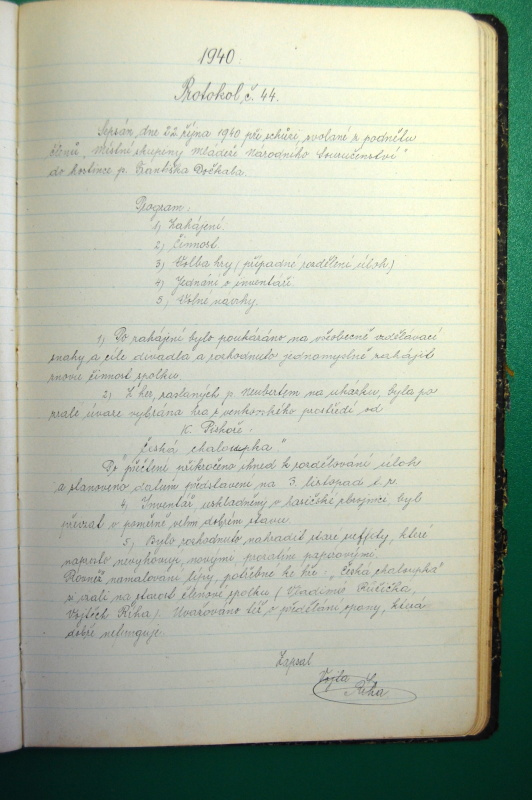 1940.
Protokol č. 44.
Sepsán dne 22. října 1940 při schůzi, svolané z podnětu
členů „Místní skupiny Mládeže Národního Souručenství"
do hostince p. Františka Dočkala.
Program:
1) Zahájení.
2) Činnost.
3) Volba hry (případné rozdělení úloh)
4) Jednání o inventáři
5) Volné návrhy.
1) Po zahájení bylo poukázáno na všeobecně vzdělávací
snahy a cíle divadla a rozhodnuto jednomyslně zahájit
znovu činnost spolku.
2) Z her, zaslaných p. Neubertem na ukázku, byla po
zralé úvaze vybrána hra z venkovského prostředí od
K. Piskoře:
„Česká chaloupka"
Po přečtení přikročeno ihned k rozdělování úloh
a stanoveno datum představení na 3. listopad t. r.
4. Inventář uskladněný v hasičské zbrojnici byl
převzat v poměrně velmi dobrém stavu.
5) Bylo rozhodnuto nahradit staré sufity, které
naprosto nevyhovují, novými, prozatím papírovými.
Rovněž namalování lípy, potřebné ke hře: „Česká chaloupka"
si vzali na starost členové spolku (Vladimír
Vojtěch Říha). Uvažováno též o předělání opony, která
dobře nefunguje.
Zapsal
Vojta
Říha